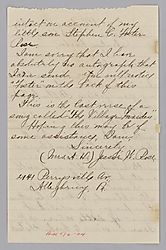 on account of my
little son Stephen C. Foster
Rose
I am sorry that I have
absolutely no autograph that
I can send. You will notice
Foster on the back of this
page.
This is the last verse of a
song called the Village Maiden
Hoping this may be of
some assistance, I am,
Sincerely
(Mrs. A. D.) Jessie W. Rose
Perrysville Ave
Allegheny, Pa